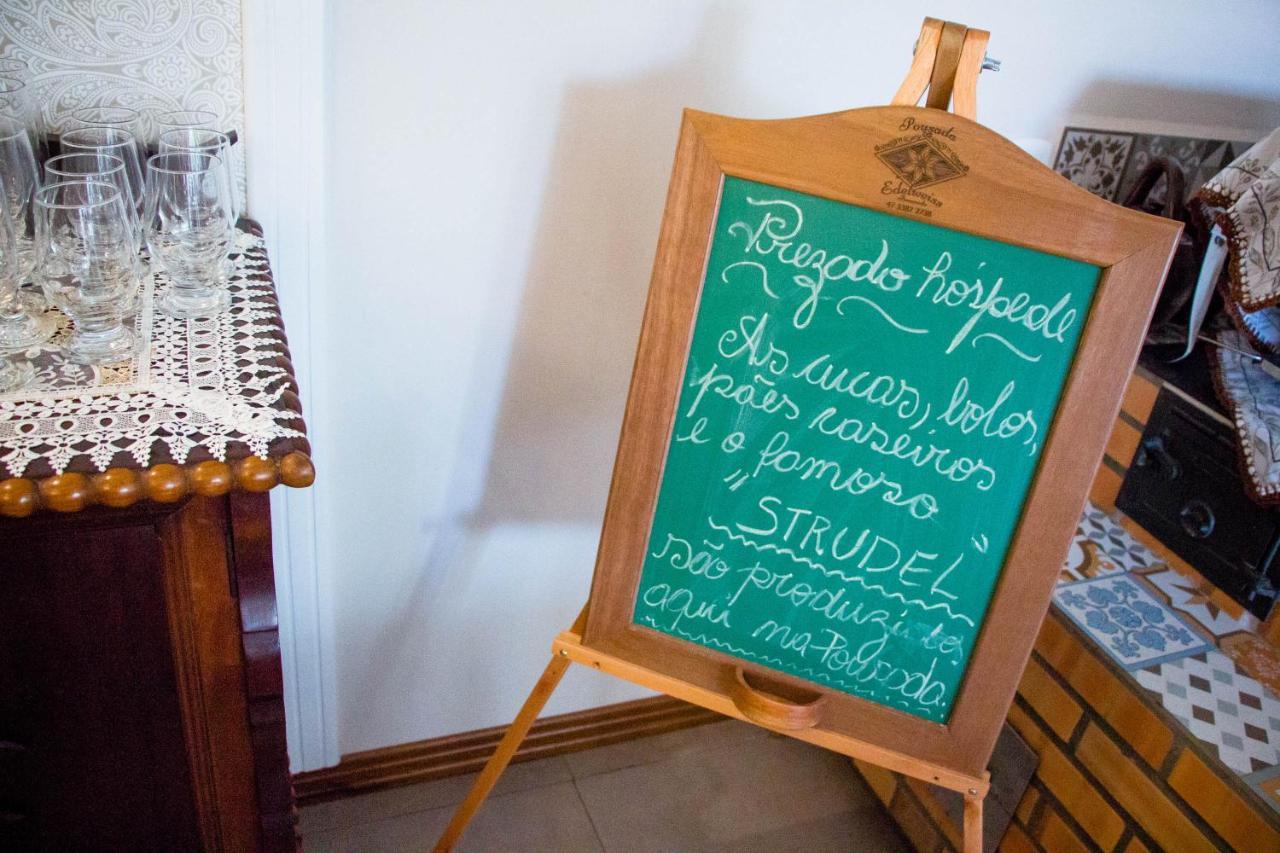 Pousada
Edelweiss
Prezado hóspede
As cucas, bolos,
pães caseiros
e o famoso
"STRUDEL"
são produzidos
aqui na Pousada.